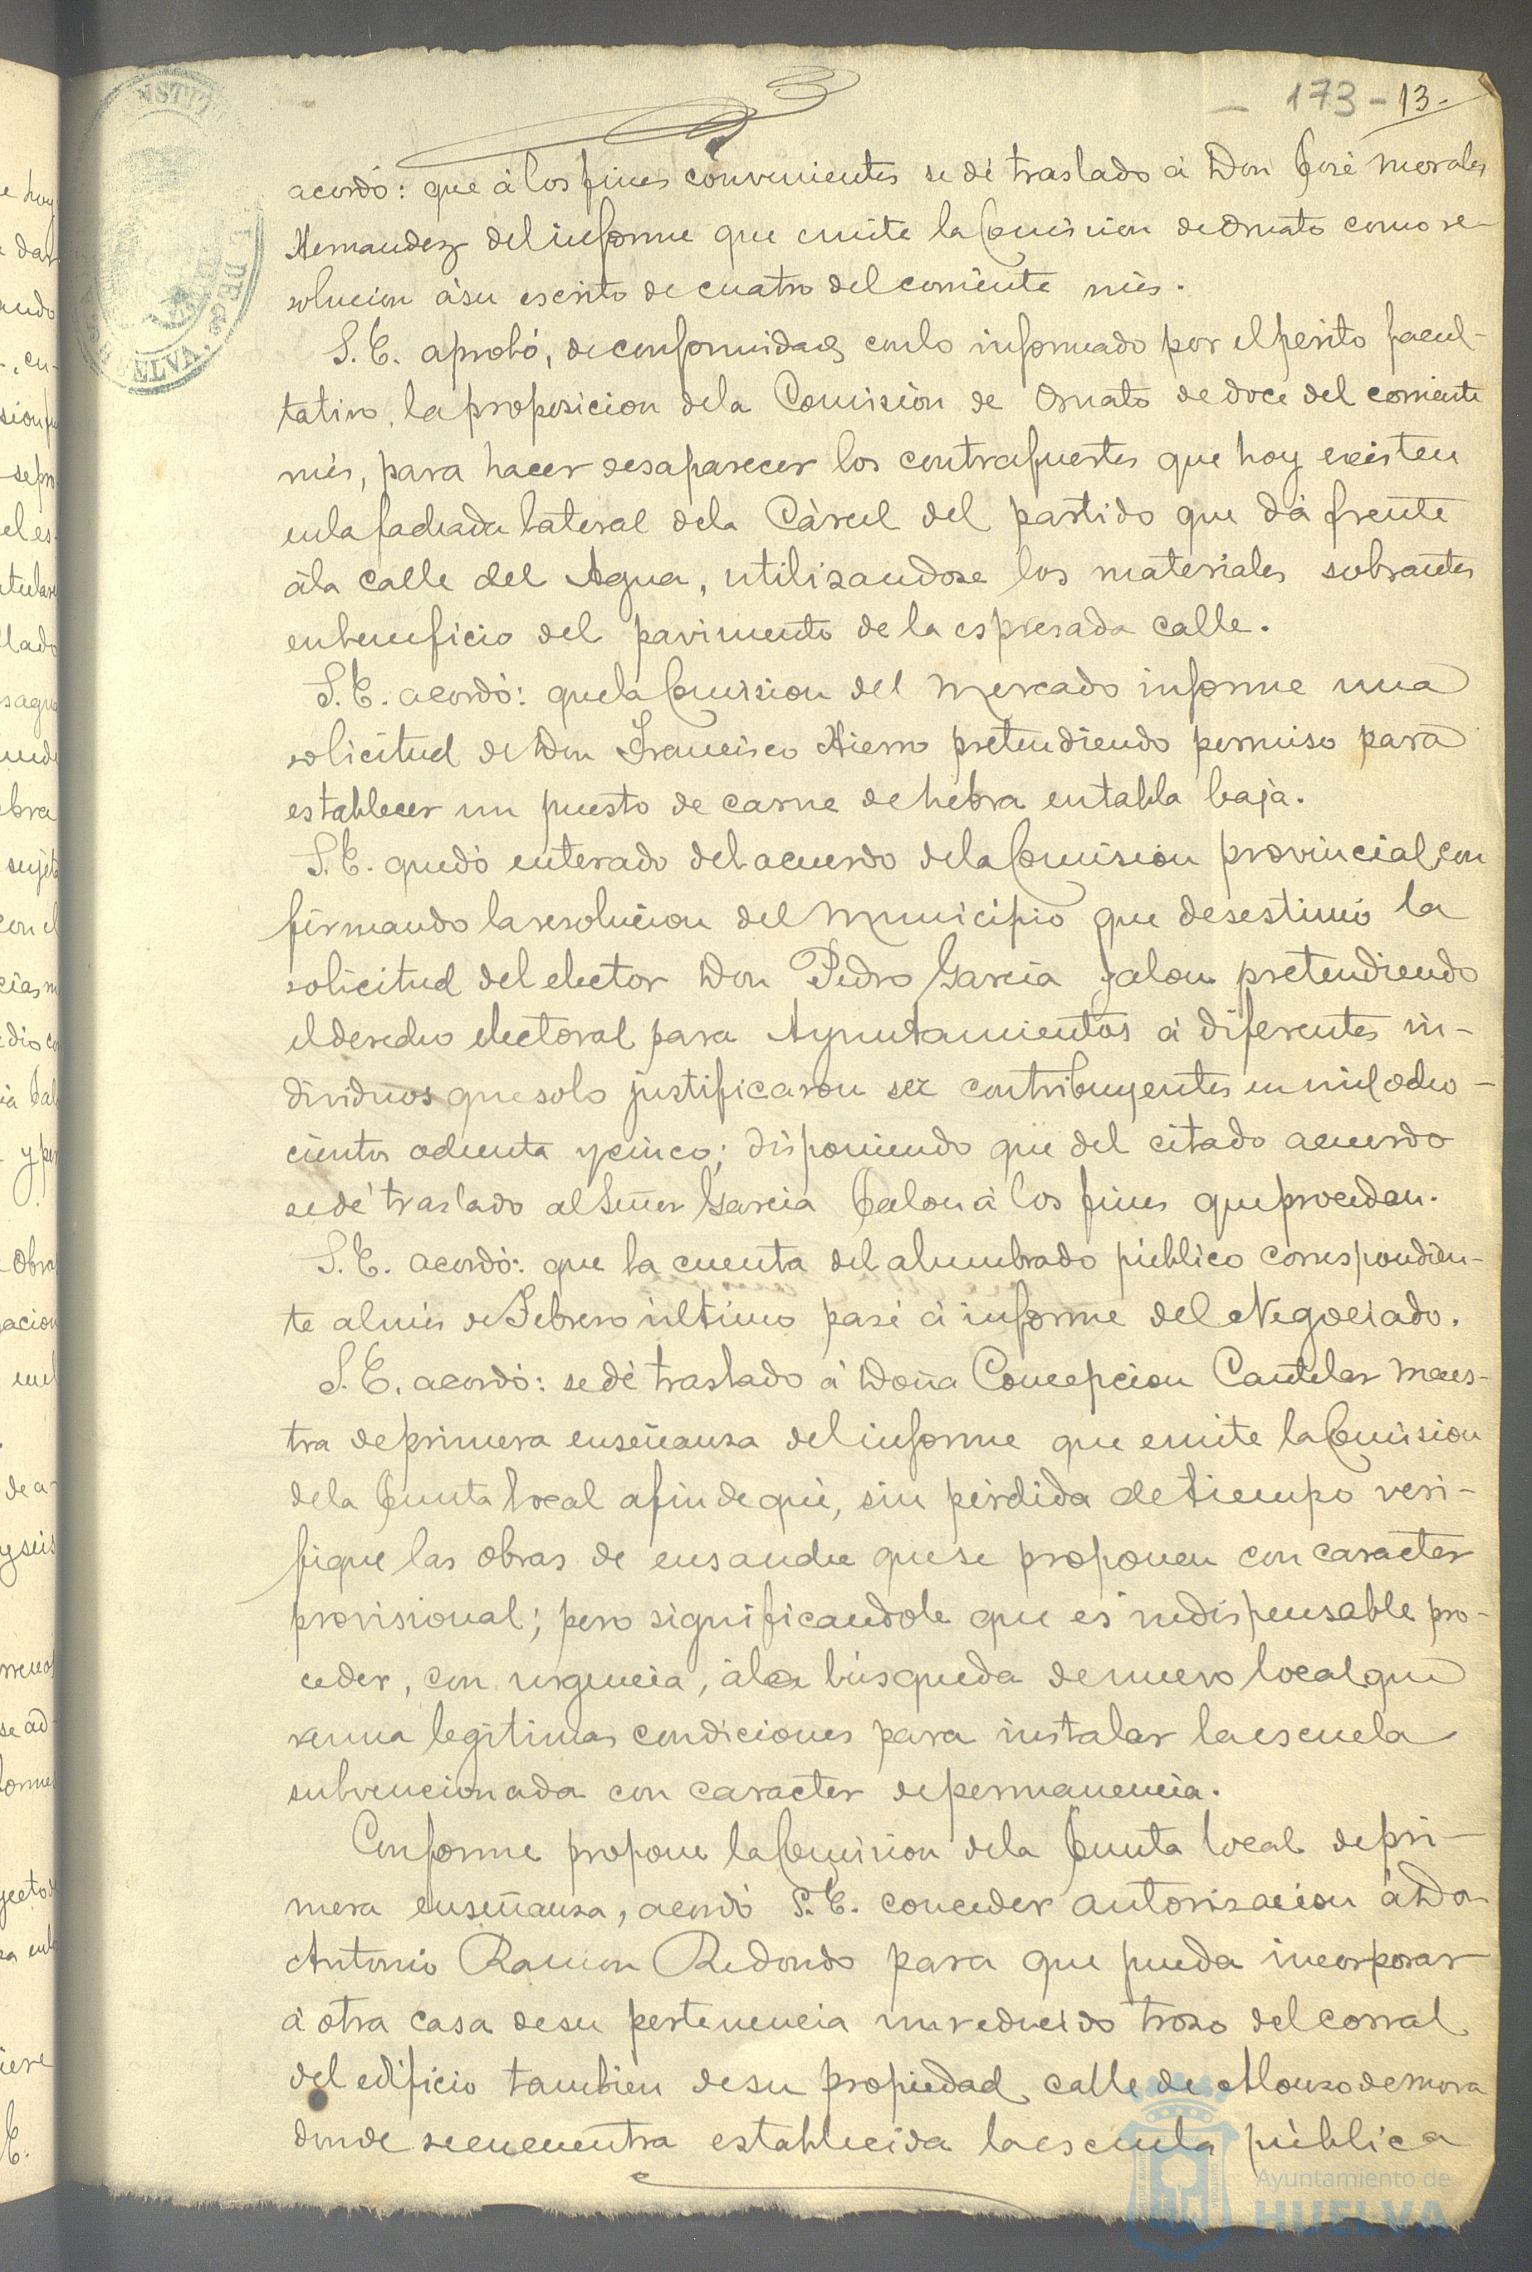 173 - 13 -
acordó: que á los fines convenientes se dé traslado á Don José Morales
Hernandez del informe que emite la Comision de Ornato como re-
solucion á su escrito de cuatro del corriente mes.
S. E. aprobó, de conformidad con lo informado por el perito facul-
tativo, la proposicion de la Comisión de Ornato de doce del corriente
mes, para hacer desaparecer los contrafuertes que hoy existen
en la fachada lateral de la Cárcel del partido que dá frente
á la calle del Agua, utilisandose los materiales sobrantes
en beneficio del pavimento de la espresada calle.
S. E. acordó: que la Comision del Mercado informe una
solicitud de Don Francisco Hierro pretendiendo permiso para
establecer un puesto de carne de hebra en tabla baja.
S. E. quedó enterado del acuerdo de la Comision provincial con
firmando la resolucion del Municipio que desestimó la
solicitud del elector Don Pedro Garcia Jalon pretendiendo
el derecho electoral para Ayuntamientos á diferentes in-
dividuos que solo justificaron ser contribuyentes en mil ocho-
cientos ochenta y cinco; disponiendo que del citado acuerdo
se dé traslado al Señor Garcia Jalon á los fines que procedan.
S. E. acordó: que la cuenta del alumbrado público correspondien-
te al mes de Febrero último pase á informe del Negociado.
S. E. acordó: se dé traslado á Doña Concepcion Cantelar maes-
tra de primera enseñanza del informe que emite la Comision
de la Junta local a fin de que, sin pérdida de tiempo veri-
fique las obras de ensanche que se proponen con caracter
provisional; pero significandole que es indispensable pro-
ceder, con urgencia, á la búsqueda de nuevo local que
reuna legitimas condiciones para instalar la escuela
subvencionada con caracter de permanencia.
Conforme propone la Comision de la Junta local de pri-
mera enseñanza, acordó S. E. conceder autorisacion á Don
Antonio Ramon Redondo para que pueda incorporar
á otra casa de su pertenencia un reducido troso del corral
del edificio tambien de su propiedad calle de Alonso de Mora
donde se encuentra establecida la escuela pública
Ayuntamiento de
HUELVA